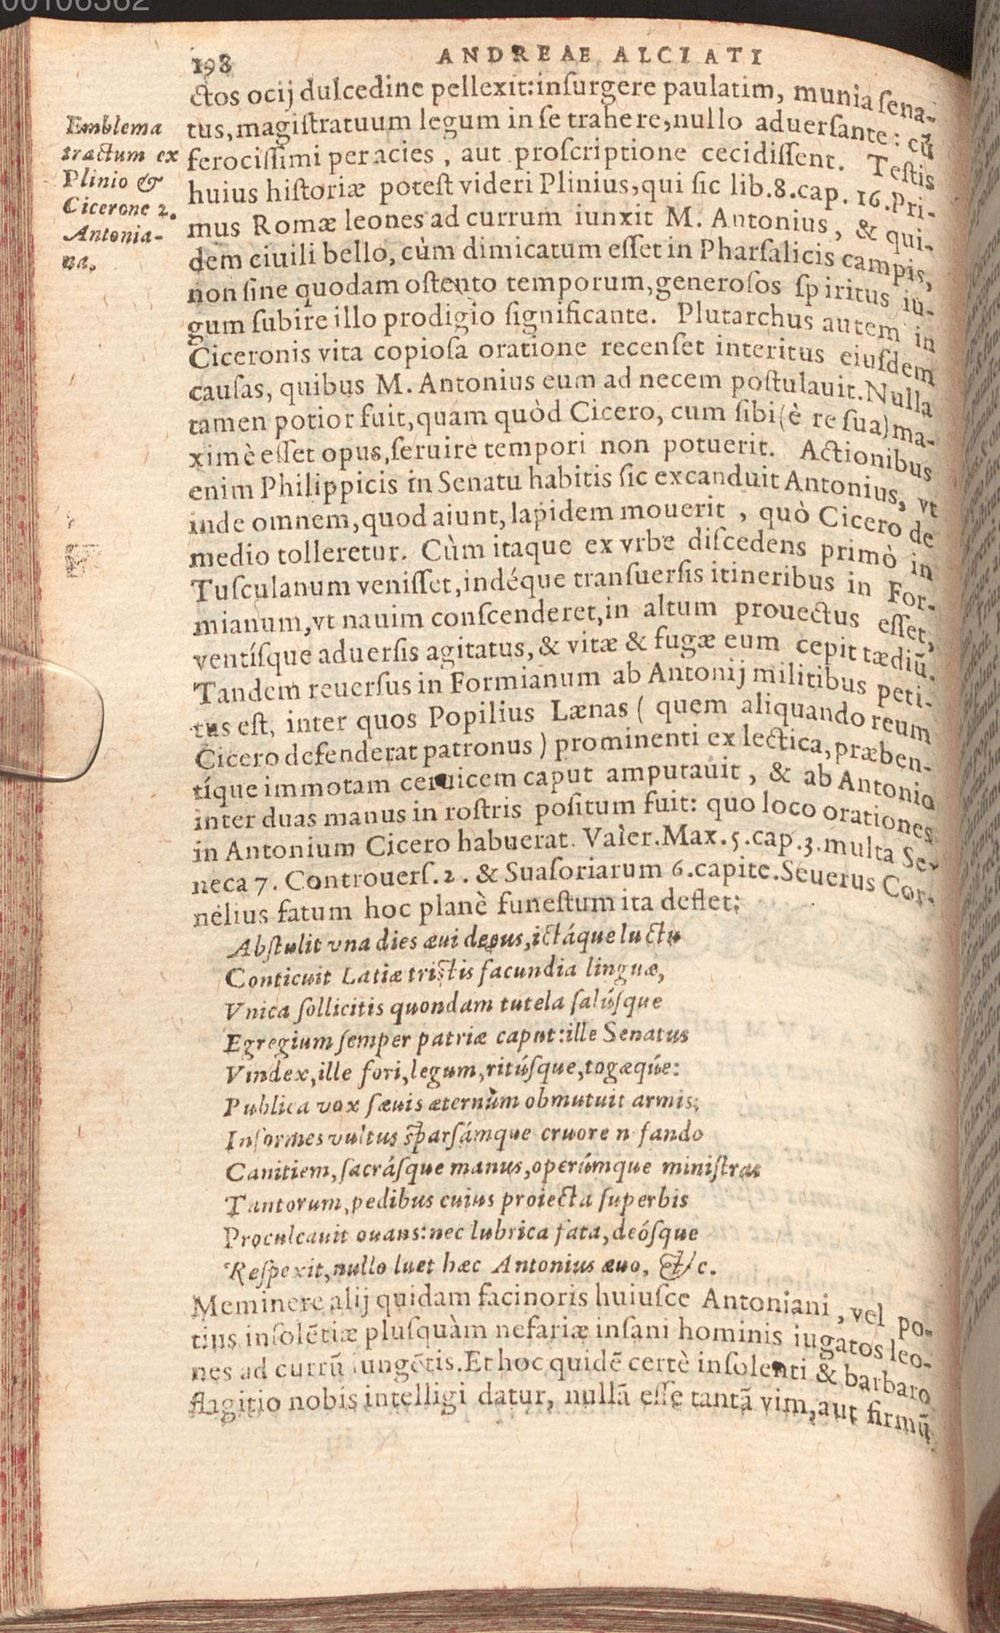 00106362
198
ANDREAE ALCIATI
ctos ocij dulcedine pellexit:inſurgere paulatim, munia ſena-
tus,magiſtratuum legum in ſe trahere,nullo aduerſante: cū
ferociſſimi per acies, aut proſcriptione cecidiſſent. Teſtis
huius hiſtoriæ poteſt videri Plinius,qui ſic lib.8.cap. 16.Pri-
mus Romæ leones ad currum iunxit M. Antonius, & qui-
dem ciuili bello, cùm dimicatum eſſet in Pharſalicis campis,
non ſine quodam oſtento temporum,generoſos ſpiritus iu-
gum ſubire illo prodigio ſignificante. Plutarchus autem in
Ciceronis vita copioſa oratione recenſet interitus eiuſdem
cauſas, quibus M. Antonius eum ad necem poſtulauit.Nulla
tamen potior fuit,quam quòd Cicero, cum ſibi (è re ſua) ma-
ximè eſſet opus,ſeruire tempori non potuerit. Actionibus
enim Philippicis in Senatu habitis ſic excanduit Antonius, vt
inde omnem,quod aiunt, lapidem mouerit, quò Cicero de
medio tolleretur. Cùm itaque ex vrbe diſcedens primò in
Tuſculanum veniſſet,indéque tranſuerſis itineribus in For-
mianum,vt nauim conſcenderet,in altum prouectus eſſet,
ventíſque aduerſis agitatus, & vitæ & fugæ eum cepit tædiū.
Tandem reuerſus in Formianum ab Antonij militibus peti-
tus eſt, inter quos Popilius Lænas ( quem aliquando reum
Cicero defenderat patronus ) prominenti ex lectica, præben-
tíque immotam ceruicem caput amputauit, & ab Antonio
inter duas manus in roſtris poſitum fuit: quo loco orationes
in Antonium Cicero habuerat. Valer.Max.5.cap.3.multa Se-
neca 7. Controuerſ.2. & Suaſoriarum 6.capite.Seuerus Cor-
nelius fatum hoc planè funeſtum ita deflet:
Abſtulit vna dies æui decus,ictáque luctu
Conticuit Latiæ triſtis facundia linguæ,
Vnica ſollicitis quondam tutela ſalúſque
Egregium ſemper patriæ caput:ille Senatus
Vindex,ille fori,legum,ritúſque,togæqúe:
Publica vox ſæuis æternùm obmutuit armis;
Informes vultus ſparſámque cruore n fando
Canitiem,ſacráſque manus,operúmque miniſtras
Tantorum,pedibus cuius proiecta ſuperbis
Proculcauit ouans:nec lubrica fata,deóſque
Reſpexit,nullo luet hæc Antonius æuo, &c.
Meminere alij quidam facinoris huiuſce Antoniani, vel po-
tius inſolētiæ pluſquàm nefariæ inſani hominis iugatos leo-
nes ad currū iungētis.Et hoc quidē certè inſolenti & barbaro
flagitio nobis intelligi datur, nullā eſſe tantā vim,aut firmū
Emblema
tractum ex
Plinio &
Cicerone 2.
Antonia-
na.